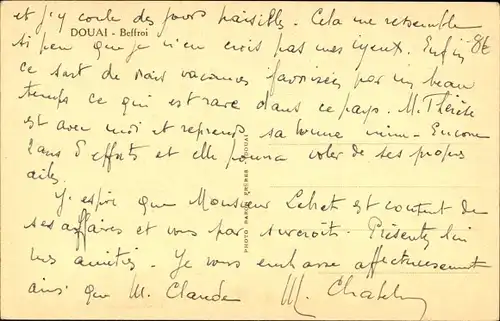 et j'y coule des jours paisibles. Cela me ressemble
DOUAI - Beffroi
si peu que je n'en crois pas mes yeux. Enfin
8€
ce sont de vraies vacances favorisées par un beau
temps ce qui est rare dans ce pays. M. Thérèse
est avec moi et reprend sa bonne mine - Encore
d'efforts et elle pourra voler de ses propres
ailes.
J'espère que Monsieur est content de
ses affaires et vous par surcroît. Présentez lui
mes amitiés. Je vous embrasse affectueusement
ainsi que M. Claude
M.
PHOTO FRÈRES - DOUAI